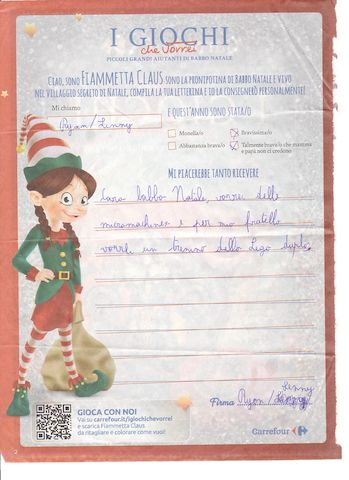 I GIOCHI
che Vorrei
PICCOLI GRANDI AIUTANTI DI BABBO NATALE
CIAO, SONO FIAMMETTA CLAUS SONO LA PRONIPOTINA DI BABBO NATALE E VIVO
NEL VILLAGGIO SEGRETO DI NATALE, COMPILA LA TUA LETTERINA E IO LA CONSEGNERÒ PERSONALMENTE!
Mi chiamo
Ryan/Lenny
E QUEST'ANNO SONO STATA/O
Monella/o
Bravissima/o
Abbastanza brava/o
Talmente brava/o che mamma
e papà non ci credono
MI PIACEREBBE TANTO RICEVERE
Caro babbo Natale, vorrei delle
micromachines e per mio fratello
vorrei un trenino della Lego duplo
Lenny
Firma Ryan/
GIOCA CON NOI
Vai su carrefour.it/igiochichevorrei
e scarica Fiammetta Claus
da ritagliare e colorare come vuoi!
Carrefour
2